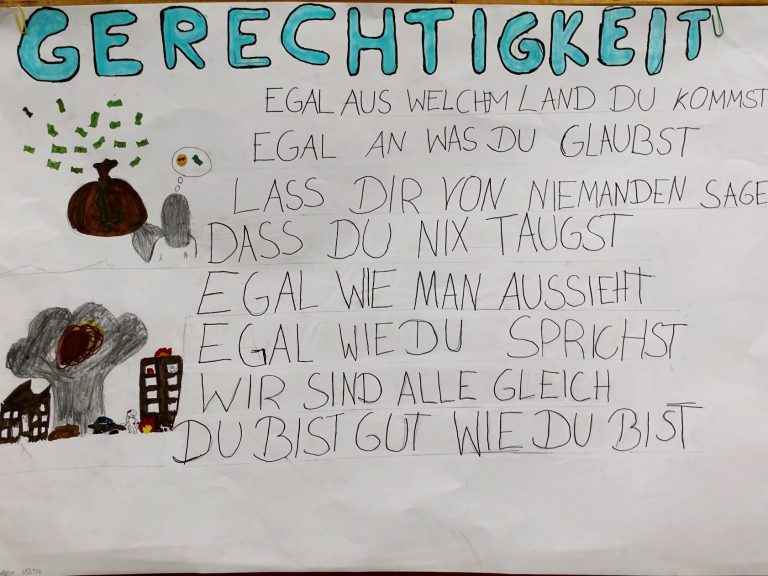 GERECHTIGKEIT
EGAL AUS WELCHEM LAND DU KOMMST
EGAL AN WAS DU GLAUBST
LASS DIR VON NIEMANDEN SAGE
DASS DU NIX TAUGST
EGAL WIE MAN AUSSIEHT
EGAL WIE DU SPRICHST
WIR SIND ALLE GLEICH
DU BIST GUT WIE DU BIST